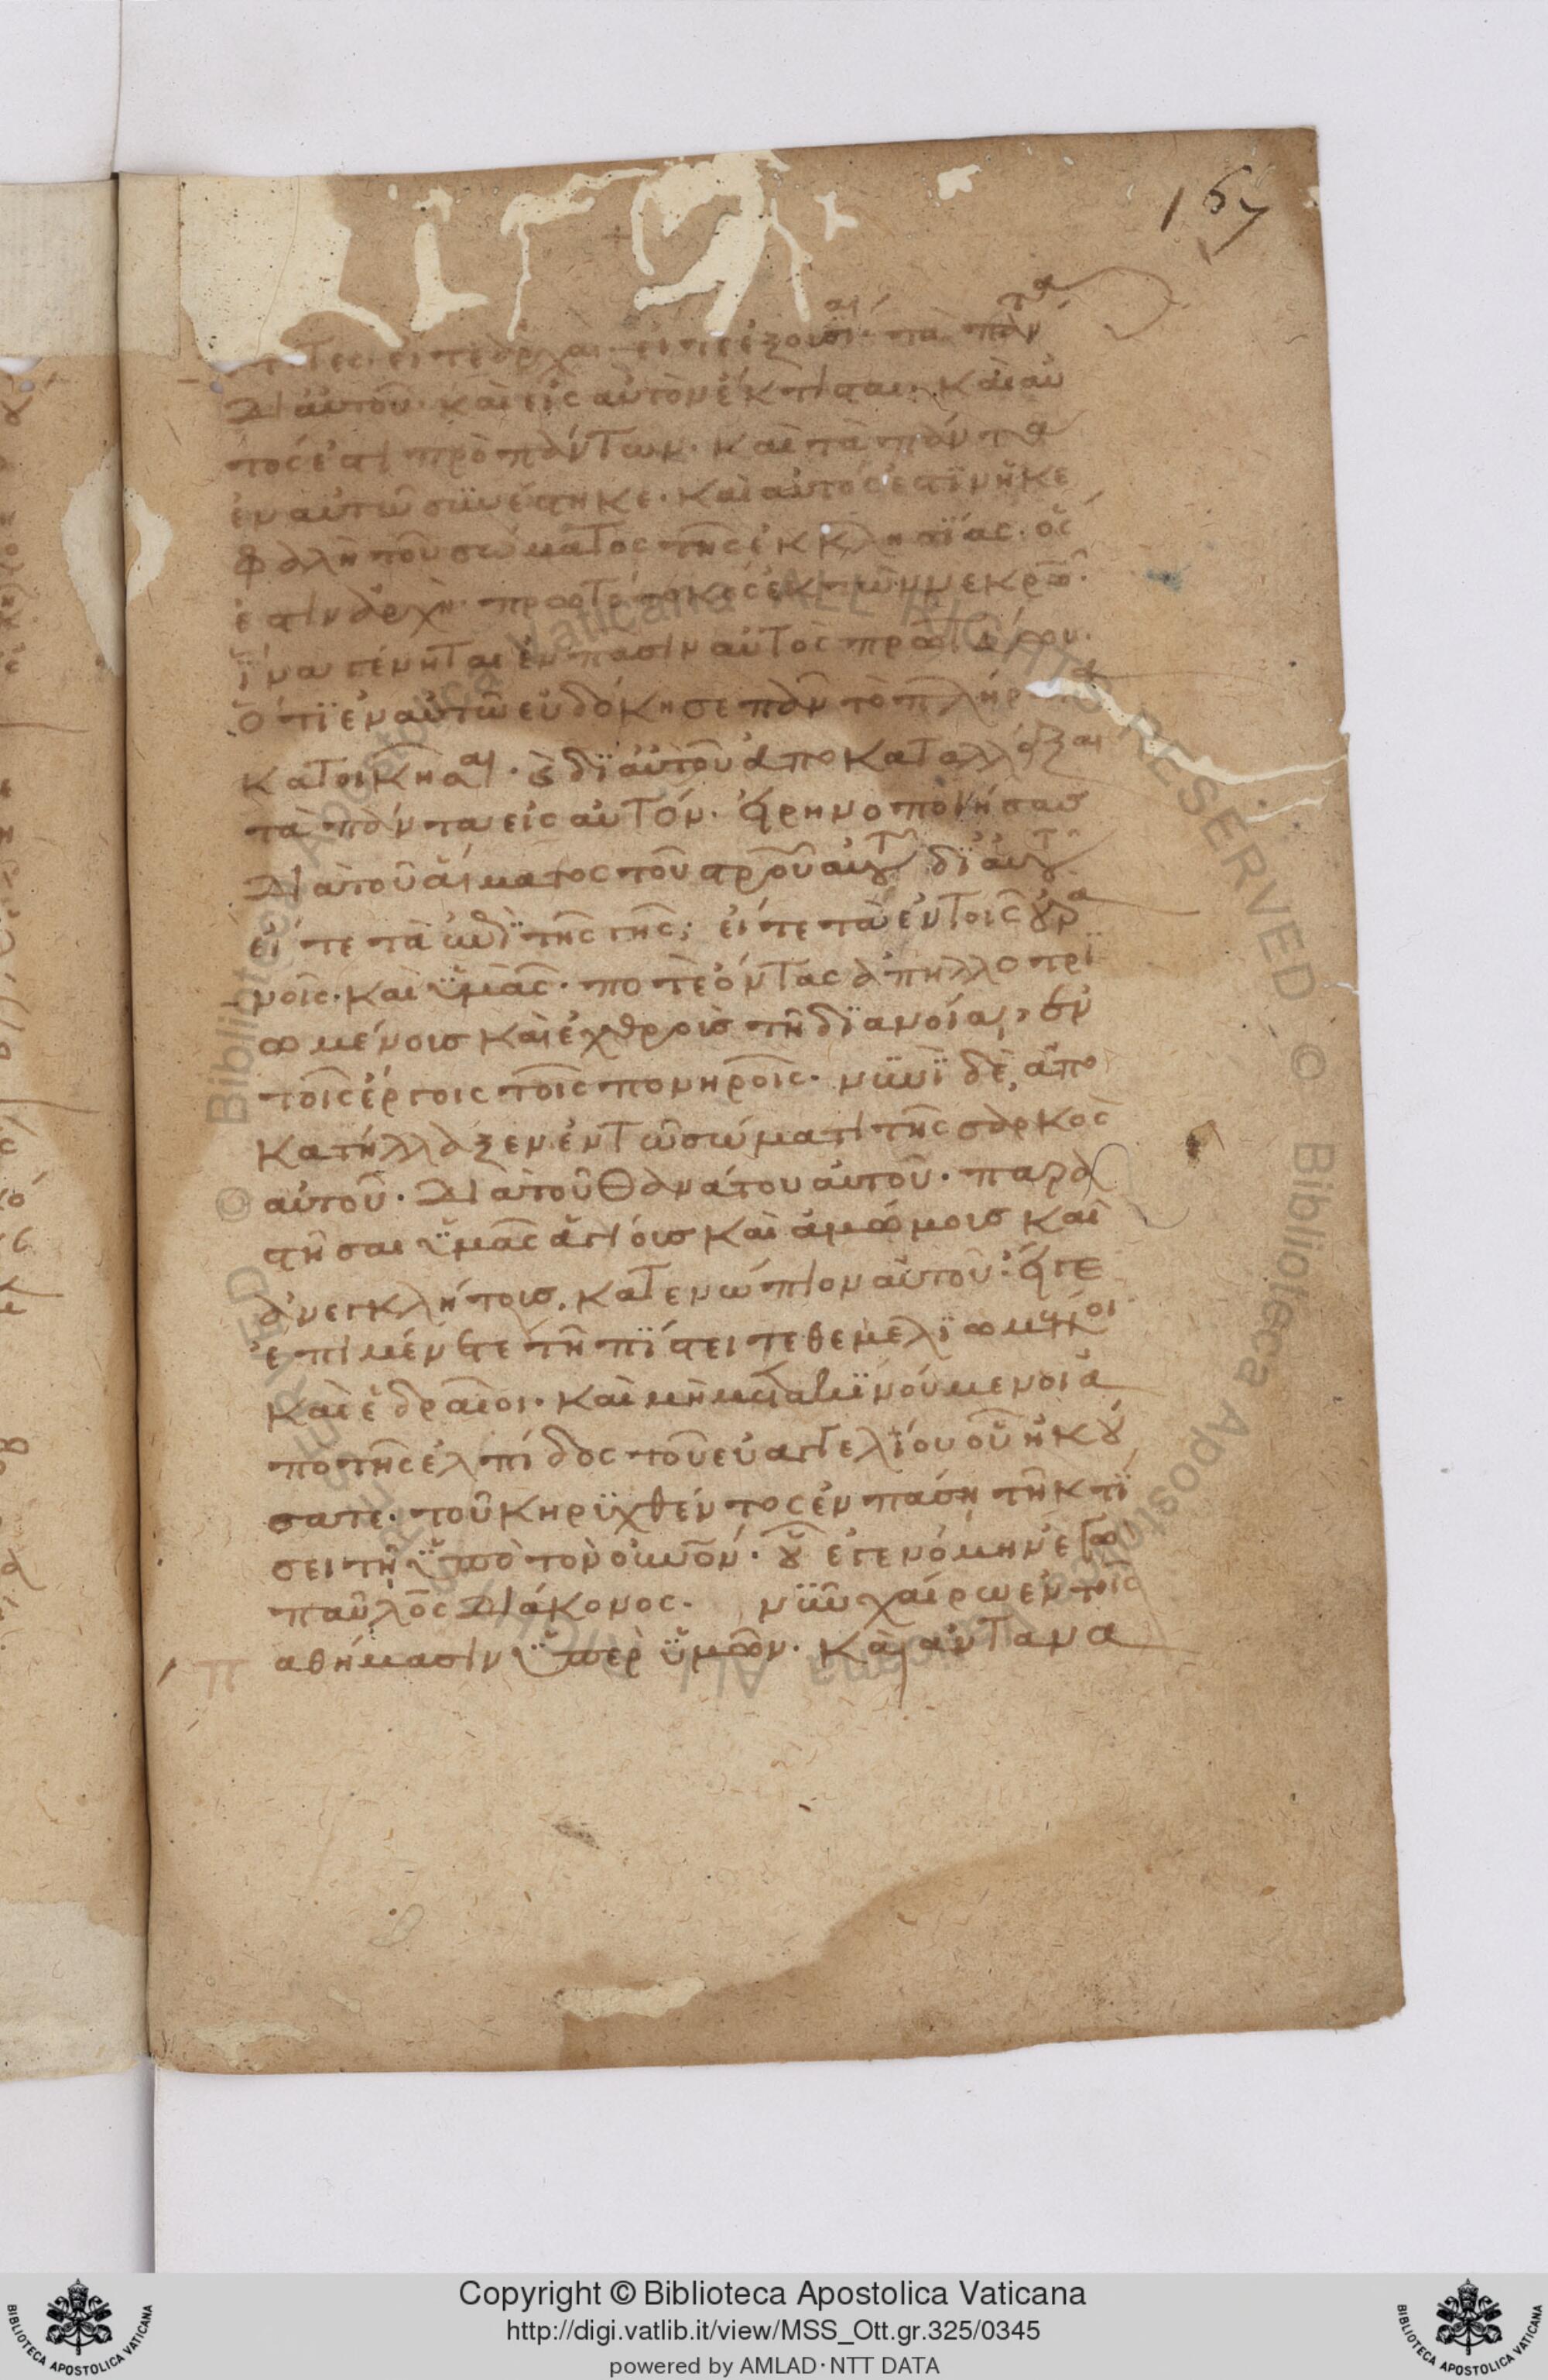 167
τητες· εἴτε ἀρχαὶ· εἴτε ἐξουσίαι· τὰ πάντα
δι' αὐτοῦ· καὶ εἰς αὐτὸν ἔκτισται· καὶ αὐ
τός ἐστι πρὸ πάντων· καὶ τὰ πάντα
ἐν αὐτῶ συνέστηκε· καὶ αὐτός ἐστὶν ἡ κε
φαλὴ τοῦ σώματος τῆς ἐκκλησίας· ὅς
ἐστιν ἀρχὴ πρωτότοκος ἐκ τῶν νεκρῶ·
ἵνα γένηται ἐν πᾶσιν αὐτὸς πρωτεύων·
ὅτι ἐν αὐτῶ εὐδόκησε πᾶν τὸ πλήρωμα
κατοικῆσαι· ϗ δι αὐτοῦ ἀποκαταλλάξαι
τὰ πάντα εἰς αὐτόν· εἰρηνοποιήσας
διὰ τοῦ αἵματος τοῦ στροῦ αὐτοῦ δι αὐτοῦ
εἴτε τὰ ἐπὶ τῆς γῆς· εἴτε τὰ ἐν τοῖς οὐρα
νοῖς· καὶ ὑμᾶς· ποτὲ ὄντας ἀπηλλοτρι
ωμένοις καὶ ἐχθροὺς τῆ διανοία, ἐν
τοῖς ἔργοις τοῖς πονηροῖς· νυνὶ δὲ ἀπο
κατήλλαξεν ἐν τῶ σώματι τῆς σαρκὸς
αὐτοῦ· διὰ τοῦ θανάτου αὐτοῦ· παρα
στῆσαι ὑμᾶς ἁγίοις καὶ ἀμώμοις καὶ
ἀνεγκλήτοις. κατενώπιον αὐτοῦ· εἴγε
ἐπιμένετε τῆ πίστει τεθεμελιωμένοι
καὶ ἑδραῖοι· καὶ μὴ μετακινούμενοι ἀ
πὸ τῆς ἐλπίδος τοῦ εὐαγγελίου οὗ ἠκού
σατε· τοῦ κηρυχθέντος ἐν πάση τῆ κτί
σει τῆ ὑπὸ τὸν οὐνόν· οὗ ἐγενόμην ἐγὼ
παῦλος διάκονος· νῦν χαίρω ἐν τοῖς
π αθήμασιν ὑπὲρ ὑμῶν· καὶ ἀντανα
Copyright © Biblioteca Apostolica Vaticana
http://digi.vatlib.it/view/MSS_Ott.gr.325/0345
powered by AMLAD·NTT DATA